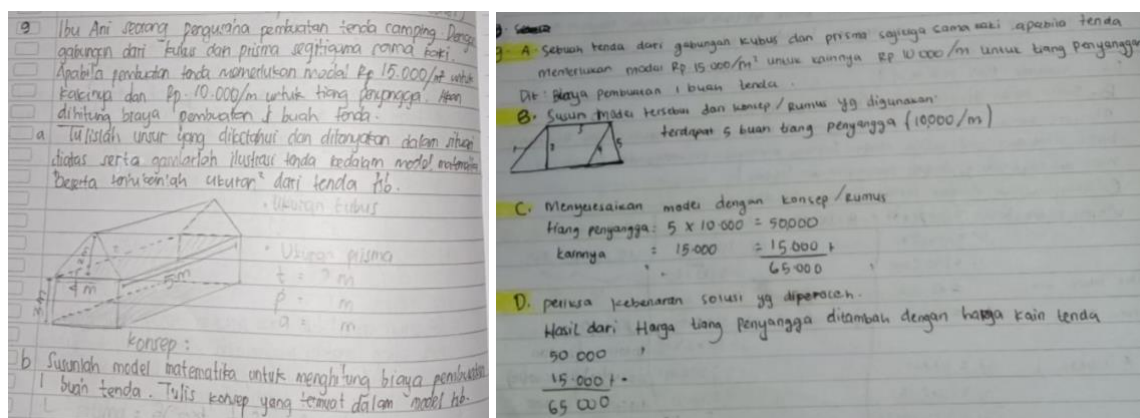 9 Ibu Ani seorang pengusaha pembuatan tenda camping Dengan
gabungan dari kubus dan prisma segitiga sama kaki.
Apabila pembuatan tenda memerlukan modal Rp 15.000/m² untuk
kainnya dan Rp. 10.000/m untuk tiang penyangga. Akan
dihitung biaya pembuatan 1 buah tenda.
a Tulislah unsur yang diketahui dan ditanyakan dalam situasi
diatas serta gambarlah ilustrasi tenda kedalam model matematika
beserta ukuran² dari tenda tsb.
• Ukuran kubus
• Ukuran prisma
t = ? m
p = m
a = m
4 m
5 m
konsep :
b Susunlah model matematika untuk menghitung biaya pembuatan
1 buah tenda. Tulis konsep yang termuat dalam model tsb.
A. Sebuah tenda dari gabungan kubus dan prisma segitiga sama kaki apabila tenda
memerlukan modal Rp 15.000/m² untuk kainnya Rp 10 000/m untuk tiang penyangga
Dit : Biaya pembuatan 1 buah tenda.
B. Susun model tersebut dan konsep/Rumus yg digunakan.
terdapat 5 buah tiang penyangga (10,000/m)
1 2 3 4 5
C. Menyelesaikan model dengan konsep/Rumus
tiang penyangga : 5 x 10.000 = 50,000
kainnya : 15.000 = 15.000 +
65.000
D. periksa kebenaran solusi yg diperoleh.
Hasil dari Harga tiang penyangga ditambah dengan harga kain tenda
50 000
15.000 +
65 000